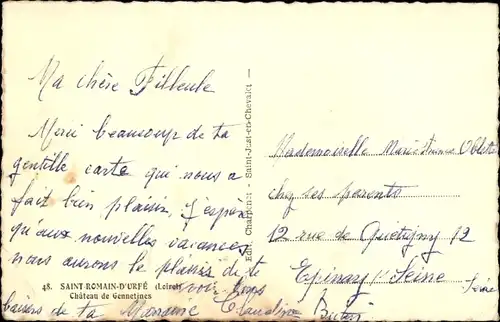 Ma chère Filleule
Merci beaucoup de ta
gentille carte qui nous a
fait bien plaisir, j'espère
qu'aux nouvelles vacances
nous aurons le plaisir de te
voir
baisers de ta Marraine Claudine
48. SAINT-ROMAIN-D'URFÉ (Loire)
Château de Gennetines
Edit. Charpenet - Saint-Just-en-Chevalet —
Mademoiselle Marie-France
chez ses parents
12 rue de Quétigny 12
Epinay s/ Seine
Seine